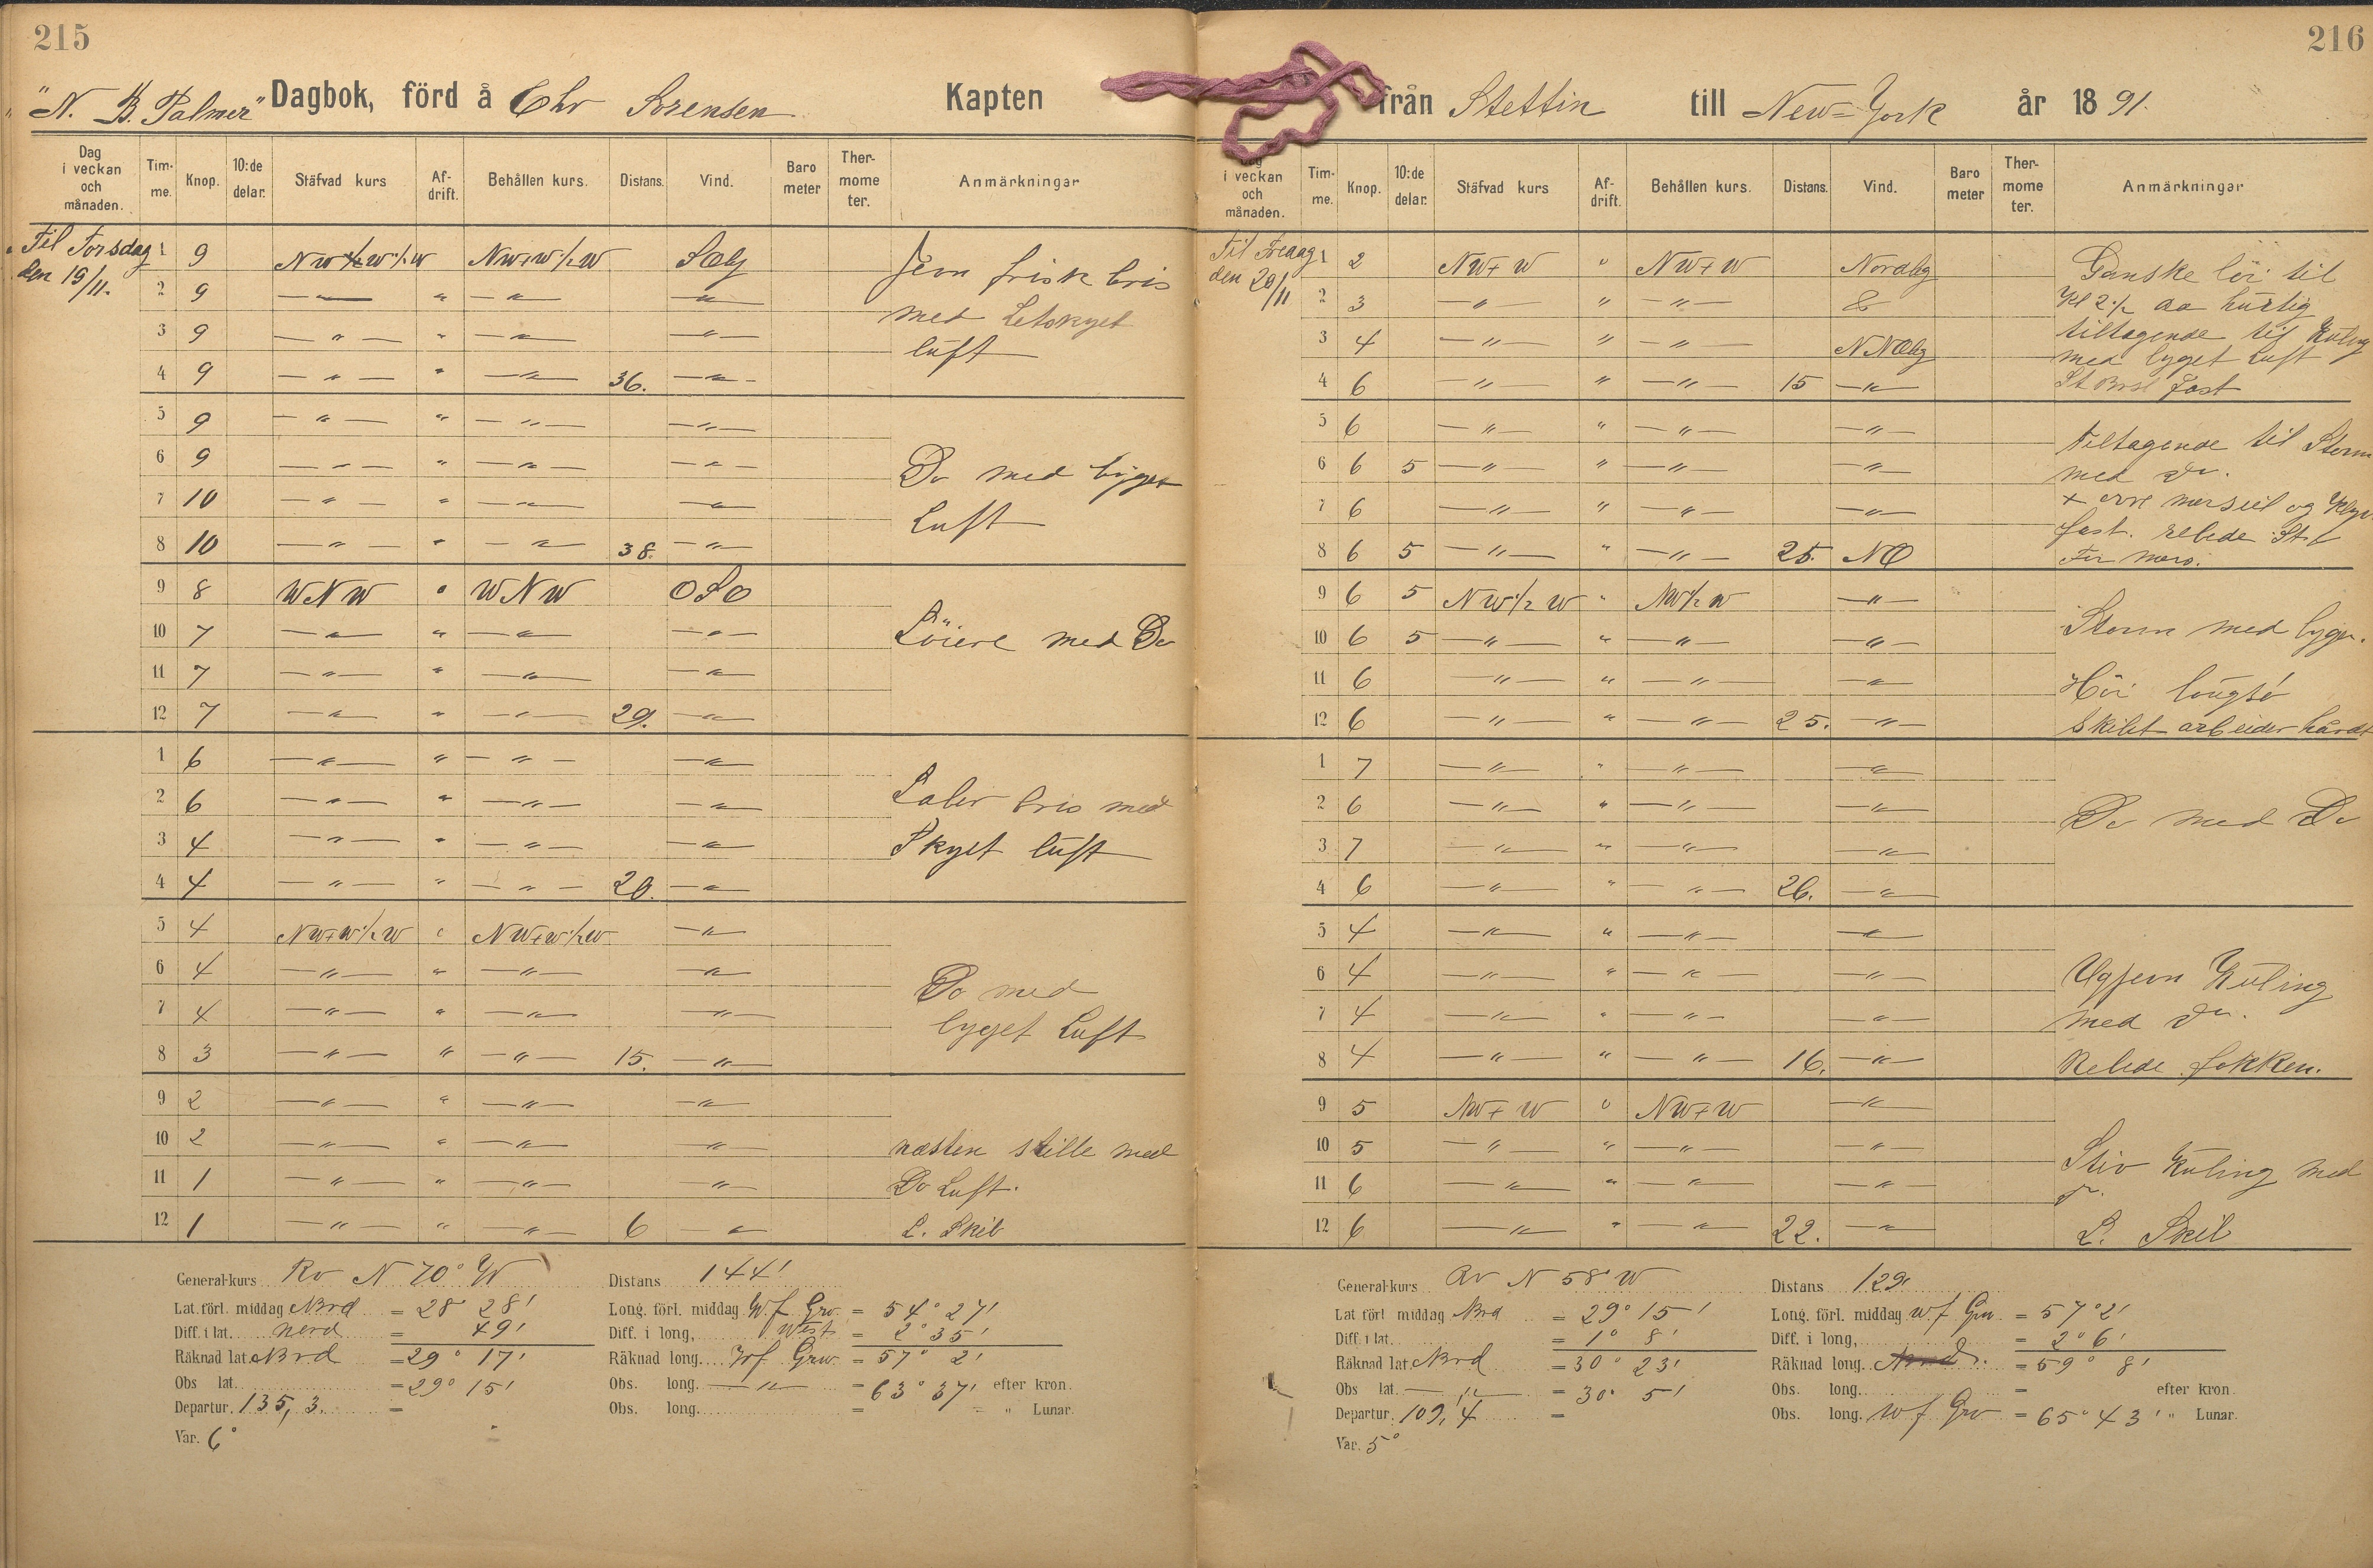 215
"N. B. Palmer" Dagbok, förd å Chr Sorensen Kapten
Dag i veckan och månaden. Tim-me. Knop. 10:de delar. Stäfvad kurs Af-drift. Behållen kurs. Distans. Vind. Baro meter Ther-mome ter. Anmärkningar
Til Torsdag den 19/11. 1 9 NW+W 1/2 W NW+W 1/2 W SOlig Jevn frisk bris
2 9 — " — " — " — — " — med Letskyet
3 9 — " — " — " — — " — luft
4 9 — " — " — " — 36. — " —
5 9 — " — " — " — — " —
6 9 — " — " — " — — " — Do med byget
7 10 — " — " — " — — " — Luft
8 10 — " — " — " — 38. — " —
9 8 WNW 0 WNW OSO
10 7 — " — " — " — — " — Löiere med Do
11 7 — " — " — " — — " —
12 7 — " — " — " — 29. — " —
1 6 — " — " — " — — " —
2 6 — " — " — " — — " — Laber bris med
3 4 — " — " — " — — " — Skyet luft
4 4 — " — " — " — 20. — " —
5 4 NW+W 1/2 W " NW+W 1/2 W — " —
6 4 — " — " — " — — " — Do med
7 4 — " — " — " — — " — byget Luft
8 3 — " — " — " — 15. — " —
9 2 — " — " — " — — " —
10 2 — " — " — " — — " — næsten stille med
11 1 — " — " — " — — " — Do Luft.
12 1 — " — " — " — 6 — " — L. Skib
General-kurs Rv N 70° W Distans 144'
Lat. förl. middag Nrd = 28° 28' Long. förl. middag W. f Grw. = 54° 27'
Diff. i lat. nord = 49' Diff. i long, West = 2° 35'
Räknad lat. Nrd = 29° 17' Räknad long. W f Grw. = 57° 2'
Obs lat. = 29° 15' Obs. long. — " — = 63° 37' efter kron.
Departur. 135,3. = Obs. long. = " Lunar.
Var. 6°
216
från Stettin till New-York år 1891.
i veckan och månaden. Tim-me. Knop. 10:de delar. Stäfvad kurs Af-drift. Behållen kurs. Distans. Vind. Baro meter Ther-mome ter. Anmärkningar
Til Fredag den 20/11 1 2 NW+W 0 NW+W Nordlig Ganske löi til
2 3 — " — " — " — & Kl 2 1/2 da hurtig
3 4 — " — " — " — NNOlig tiltagende til Kuling
4 6 — " — " — " — 15 — " — med byget Luft
fast
5 6 — " — " — " — — " — tiltagende til Storm
6 6 5 — " — " — " — — " — med Do.
7 6 — " — " — " — — " — merseil og Klyv
8 6 5 — " — " — " — 25. NO fast. rebede St b
For mers.
9 6 5 NW 1/2 W " NW 1/2 W — " —
10 6 5 — " — " — " — — " — Storm med byger.
11 6 — " — " — " — — " — Höi
12 6 — " — " — " — 25. — " — Skibet arbeider hardt
1 7 — " — " — " — — " —
2 6 — " — " — " — — " — Do med Do
3 7 — " — " — " — — " —
4 6 — " — " — " — 26. — " —
5 4 — " — " — " — — " —
6 4 — " — " — " — — " — Ugjevn Kuling
7 4 — " — " — " — — " — med Do.
8 4 — " — " — " — 16. — " — Rebede fokken.
9 5 NW+W 0 NW+W — " —
10 5 — " — " — " — — " —
11 6 — " — " — " — — " — Stiv Kuling med
Do.
12 6 — " — " — " — 22. — " — L. Skib
General-kurs Rv N 58° W Distans 129'
Lat förl middag Nrd = 29° 15' Long. förl. middag W f Grw. = 57° 2'
Diff. i lat. = 1° 8' Diff. i long, = 2° 6'
Räknad lat. Nrd = 30° 23' Räknad long. = 59° 8'
Obs lat. — " — = 30° 5' Obs. long. = efter kron.
Departur. 109,4 = Obs. long. W f Grw = 65° 43' " Lunar.
Var. 5°